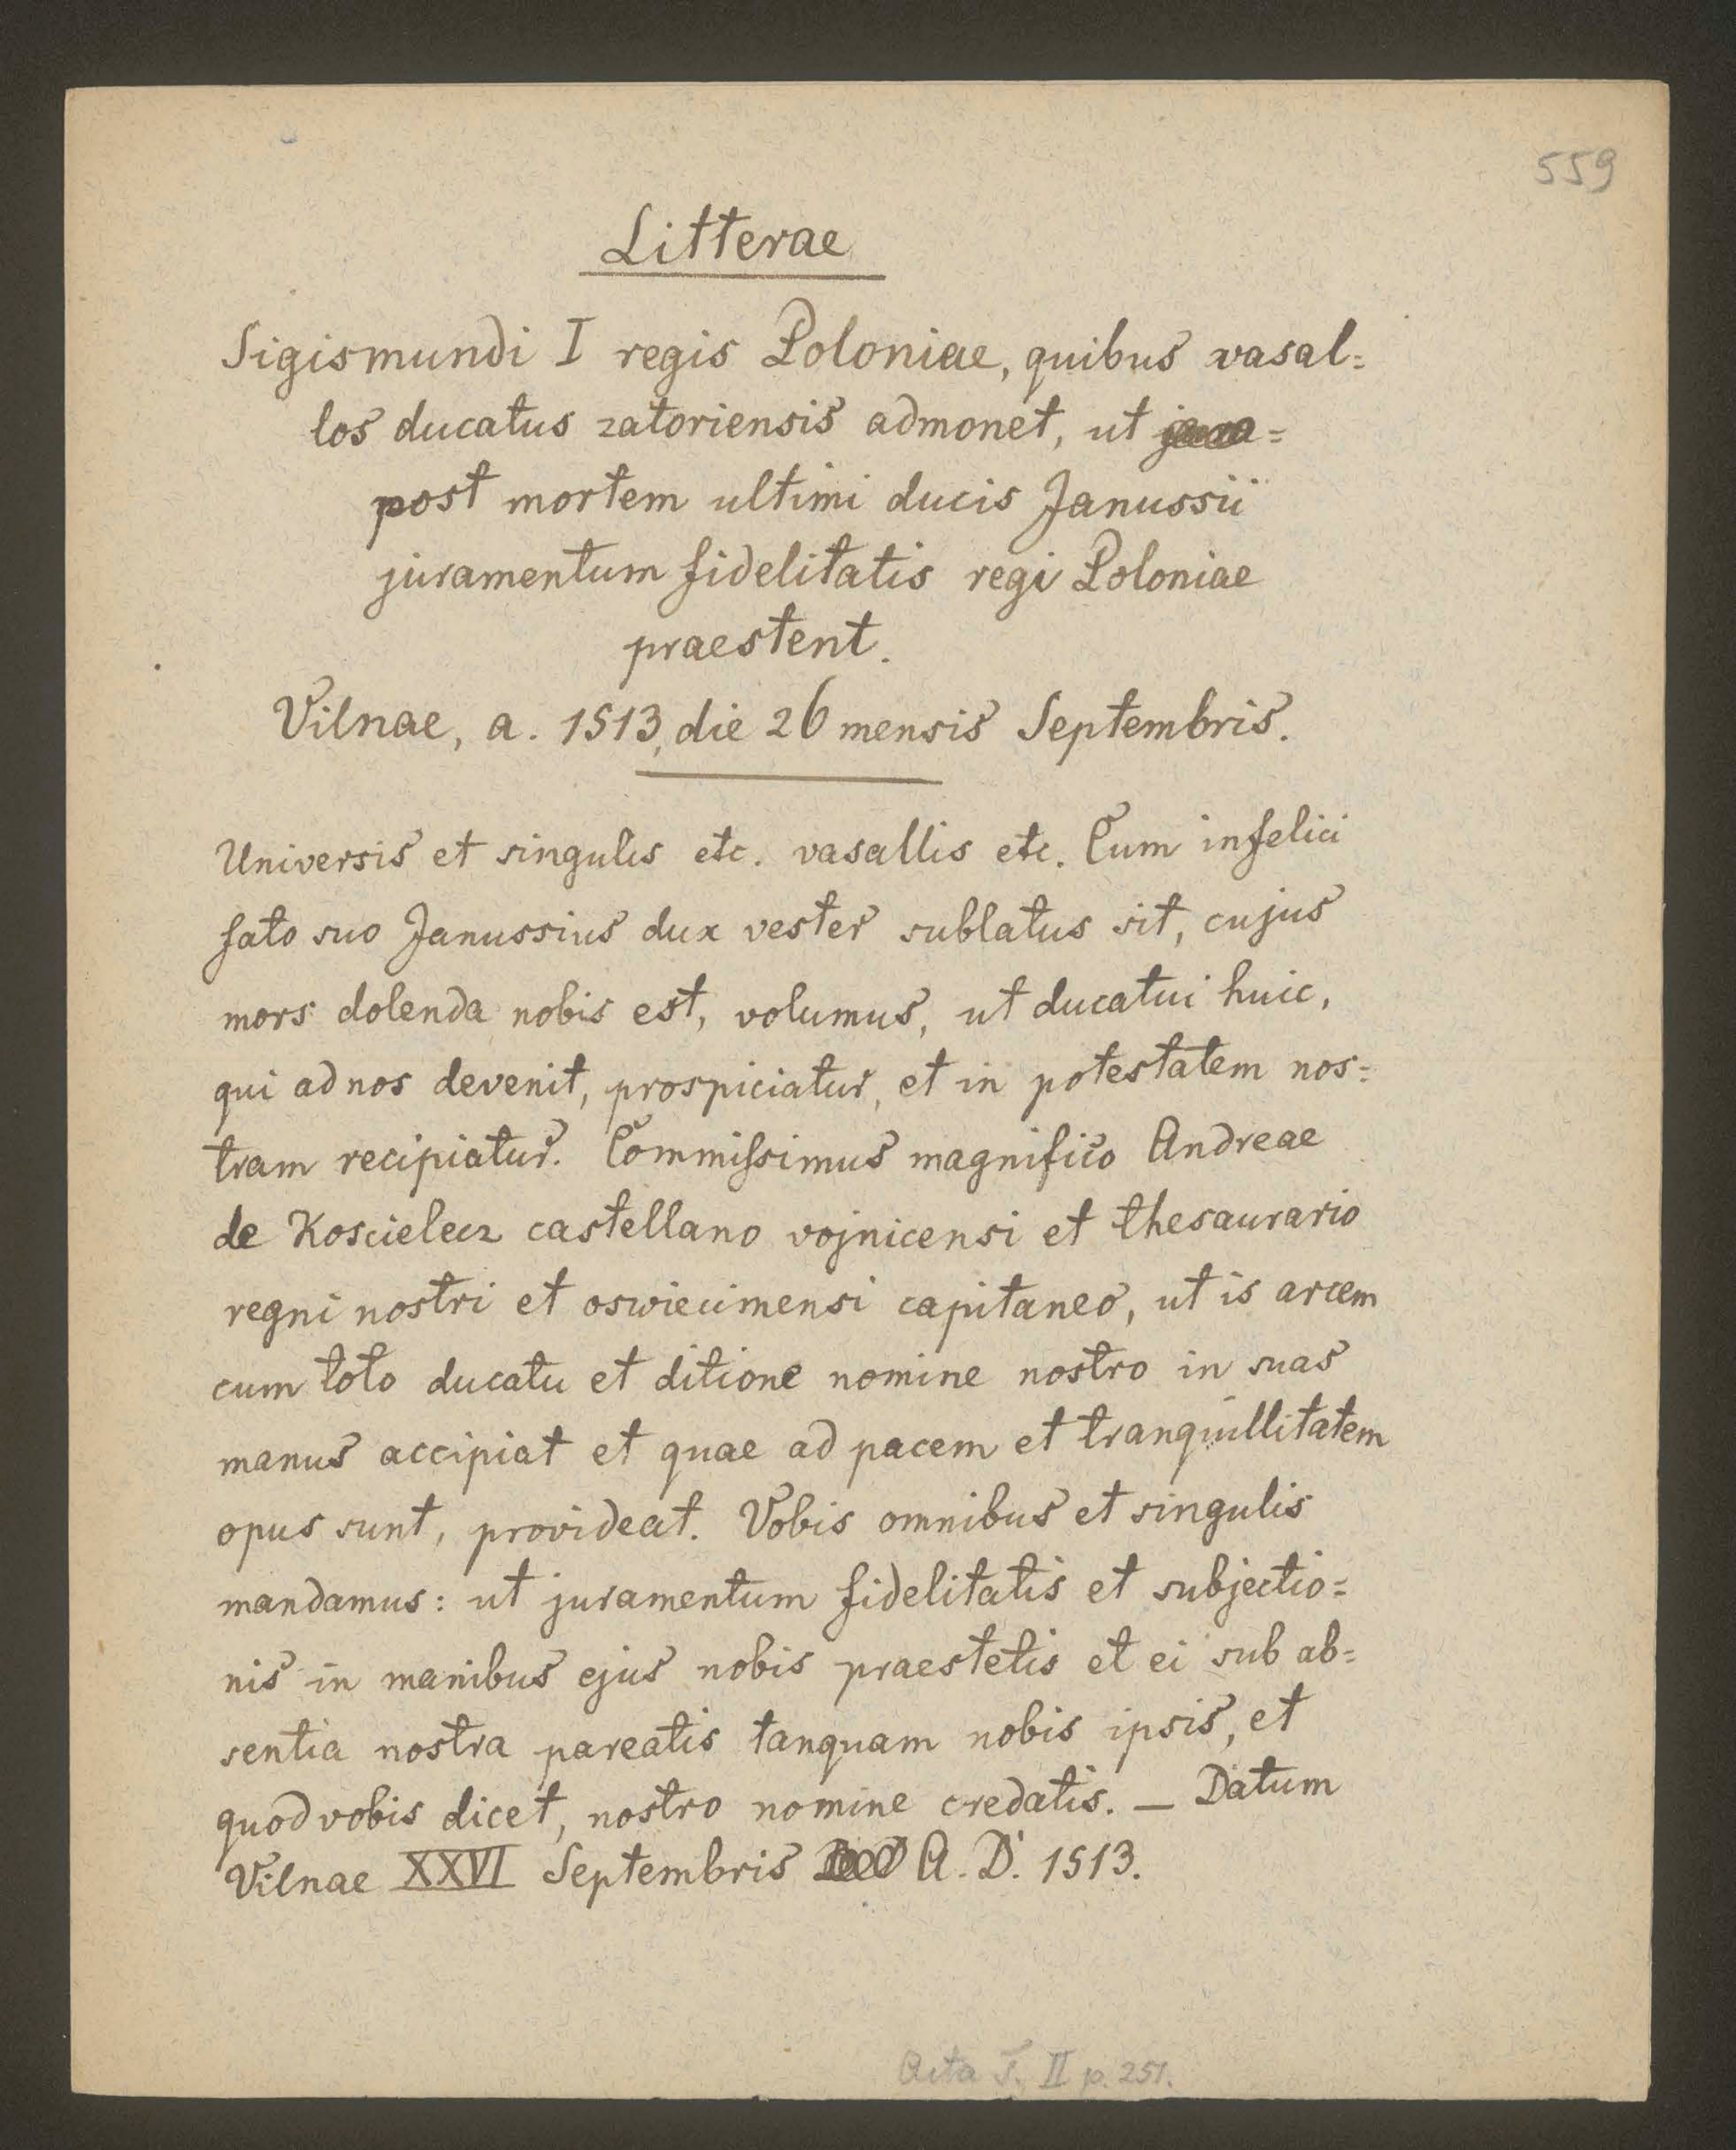 559
Litterae
Sigismundi I regis Poloniae, quibus vasal=
los ducatus zatoriensis admonet, ut
post mortem ultimi ducis Janussii
juramentum fidelitatis regi Poloniae
praestent.
Vilnae, a. 1513, die 26 mensis Septembris.
Universis et singulis etc. vasallis etc. Cum infelici
fato suo Janussius dux vester sublatus sit, cujus
mors dolenda nobis est, volumus, ut ducatui huic,
qui ad nos devenit, prospiciatur, et in potestatem nos=
tram recipiatur. Commissimus magnifico Andreae
de Koscielecz castellano vojnicensi et thesaurario
regni nostri et oswiecimensi capitaneo, ut is arcem
cum toto ducatu et ditione nomine nostro in suas
manus accipiat et quae ad pacem et tranquillitatem
opus sunt, provideat. Vobis omnibus et singulis
mandamus: ut juramentum fidelitatis et subjectio=
nis in manibus ejus nobis praestetis et ei sub ab=
sentia nostra pareatis tanquam nobis ipsis, et
quod vobis dicet, nostro nomine credatis. — Datum
Vilnae XXVI Septembris A. D. 1513.
Acta T. II p. 251.